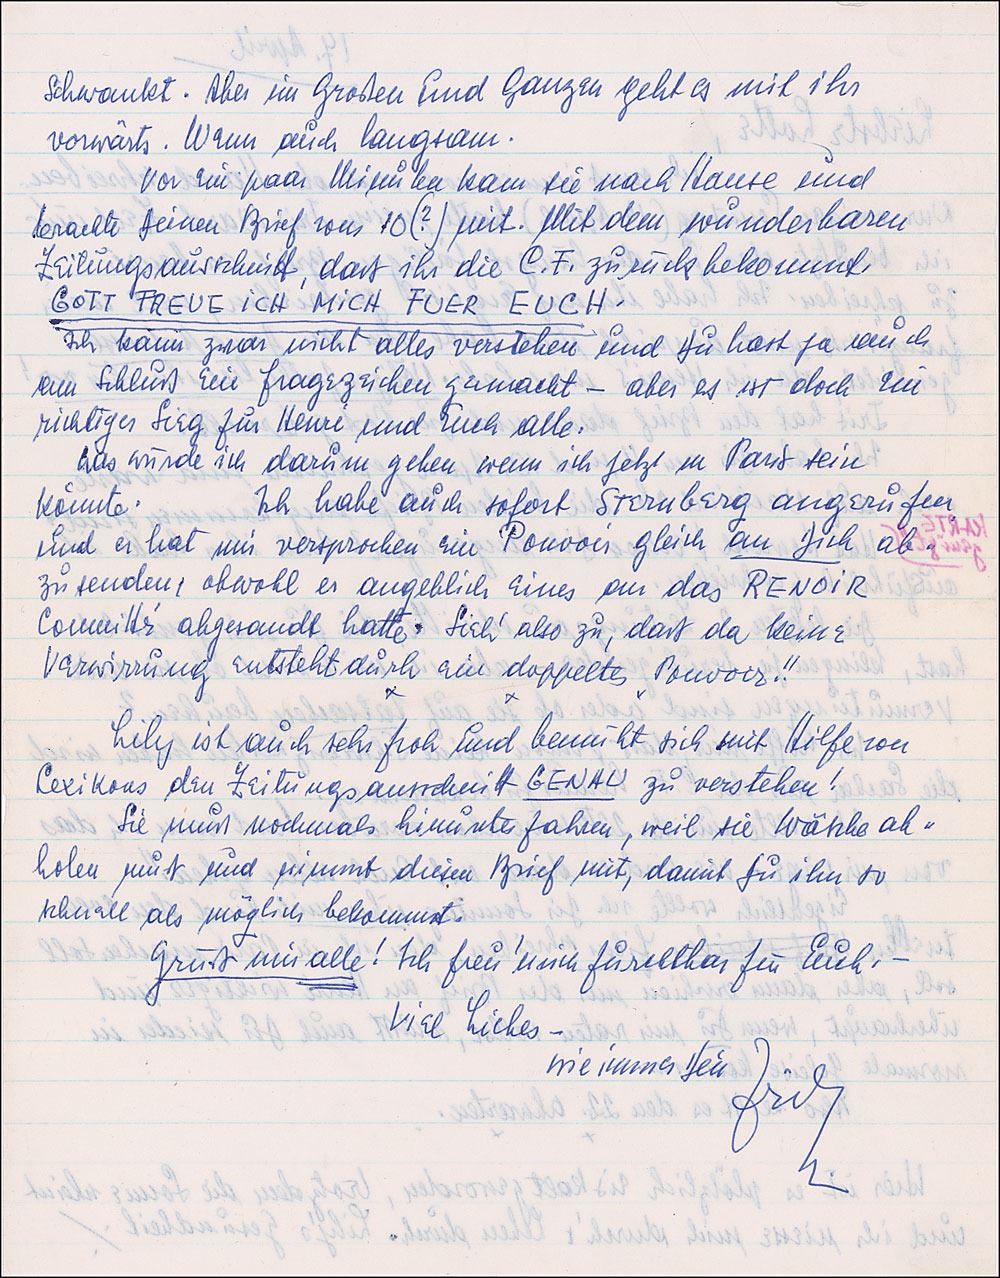 schwankt. Aber im Großen und Ganzen geht es mit ihr
vorwärts. Wenn auch langsam.
Vor ein paar Minuten kam sie nach Hause und
brachte Deinen Brief vom 10(?) mit. Mit dem wunderbaren
Zeitungsausschnitt, dast ihr die C.F. zurückbekommt.
GOTT FREUE ICH MICH FUER EUCH.
Ich kann zwar nicht alles verstehen und Du hast ja auch
am Schluß ein Fragezeichen gemacht – aber es ist doch ein
richtiger Sieg für Henri und Euch alle.
Was würde ich darum geben wenn ich jetzt in Paris sein
könnte. Ich habe auch sofort Sternberg angerufen
und er hat mir versprochen ein Pouvoir gleich an Dich ab-
zusenden, obwohl er angeblich eines an das RENOIR
Committé abgesandt hatte. Sieh' also zu, dast da keine
Verwirrung entsteht durch ein doppeltes Pouvoir!!
Lily ist auch sehr froh und bemüht sich mit Hilfe von
Lexikons den Zeitungsausschnitt GENAU zu verstehen!
Sie muss nochmals hinunterfahren, weil sie Wäsche ab-
holen muss und nimmt diesen Brief mit, damit Du ihn so
schnell als möglich bekommst.
Grüss mir alle! Ich freu' mich furchtbar für Euch. –
Viel Liebes –
wie immer Dein